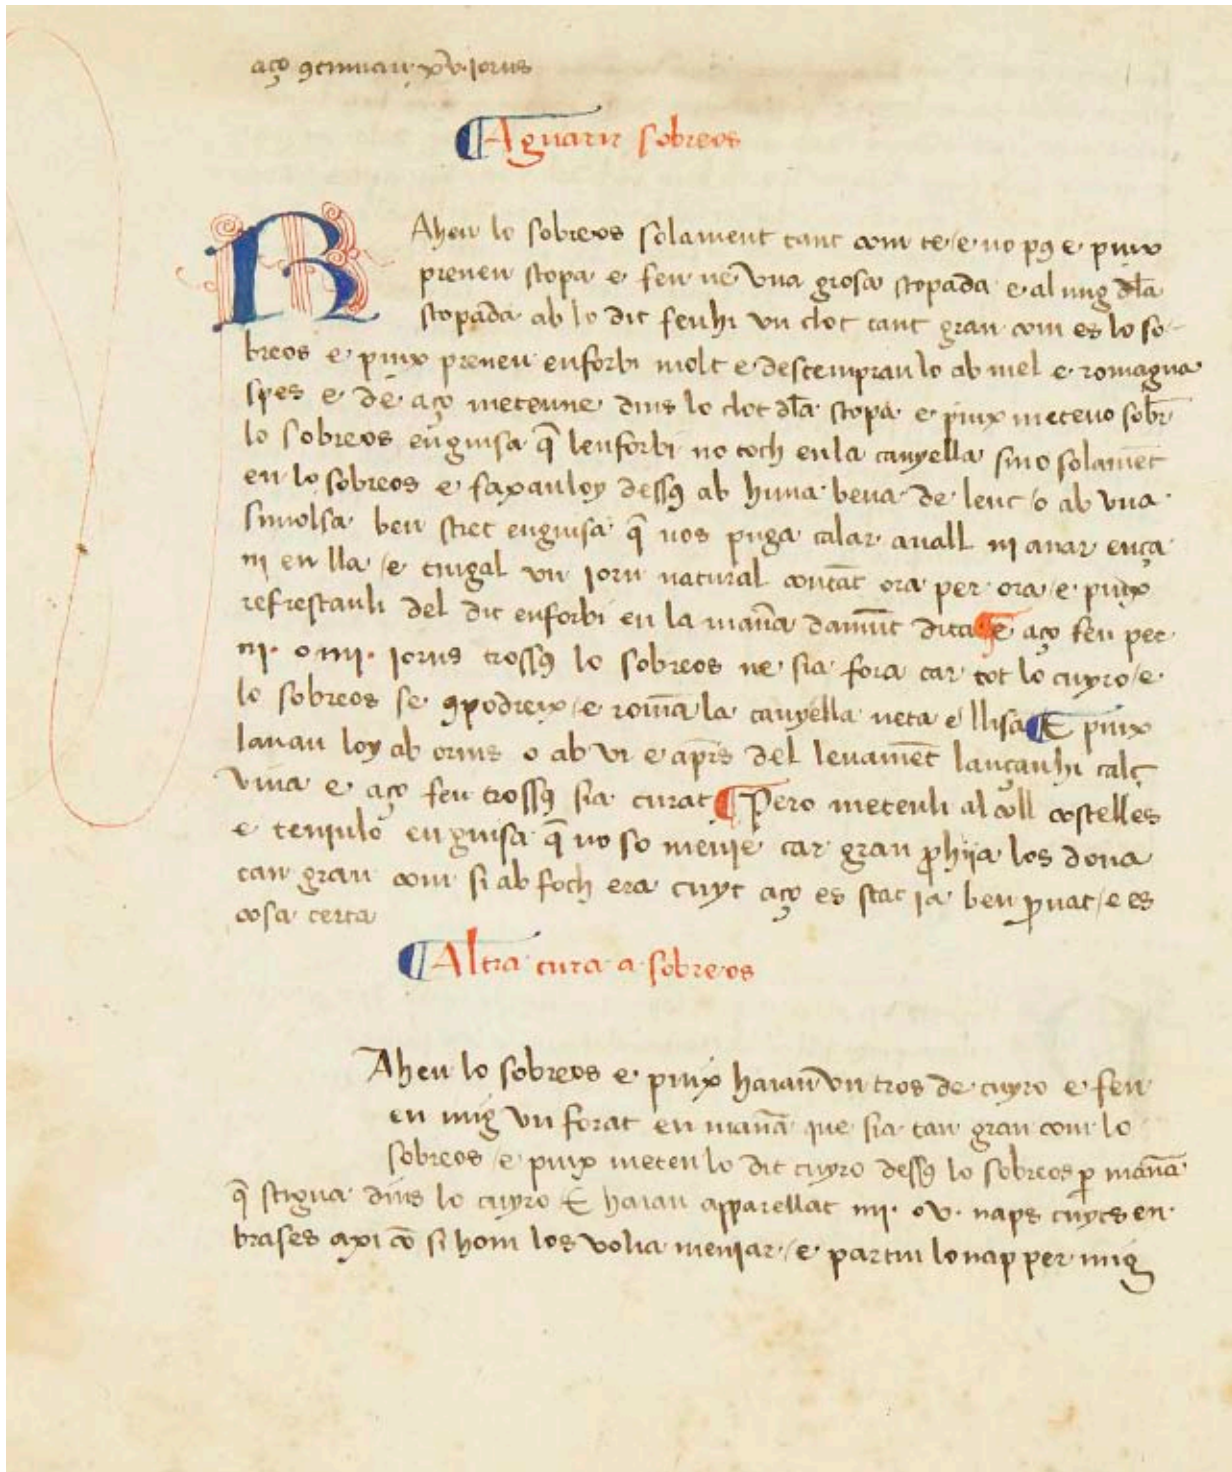 aço ꝯtinuau .xv. iorns
¶ A guarir sobreos
RAheu lo sobreos solament tant com te / e no pꝰ e puix
preneu stopa e feu ne vna grosa stopada e al mig dla
stopada ab lo dit feuhi vn clot tant gran com es lo so-
breos e puix preneu enforbi molt e destemprau lo ab mel e romagna
spes e de aço meteune dins lo clot dla stopa e puix meteuo sobr̄
lo sobreos enguisa q̄ lenforbi no toch en la canyella sino solamēt
en lo sobreos e faxauloy dessꝰ ab huna bena de lenç / o ab vna
simolsa ben stret enguisa q̄ nos puga calar auall ni anar ença
ni en lla / e tingal vn iorn natural contāt ora per ora / e puix
refrescauli del dit enforbi en la mañā damūt dita ¶ e aço feu per
.iii. o .iiii. iorns trossꝰ lo sobreos ne sia fora car tot lo cuyro / e
lo sobreos se ꝯpodreix / e romā la canyella neta e llisa ¶ E puix
lauau loy ab orins o ab vi e apr̄s del leuamēt lançauhi calç
viua e aço feu trossꝰ sia curat ¶ Pero meteuli al coll costelles
e teniulo en guisa q̄ no so menie car gran ꝓhija los dona
tan gran com si ab foch era cuyt aço es stat ia ben ꝓuat / e es
cosa certa
¶ Altra cura a sobreos
Aheu lo sobreos e puix haiau vn tros de cuyro e feu
en mig vn forat en mañā que sia tan gran com lo
sobreos / e puix meteu lo dit cuyro dessꝰ lo sobreos ꝑ mañā
q̄ stigua dins lo cuyro E haiau apparellat .iiii. o .v. naps cuyts en
brases axi cō si hom los volia meniar / e partiu lo nap per mig